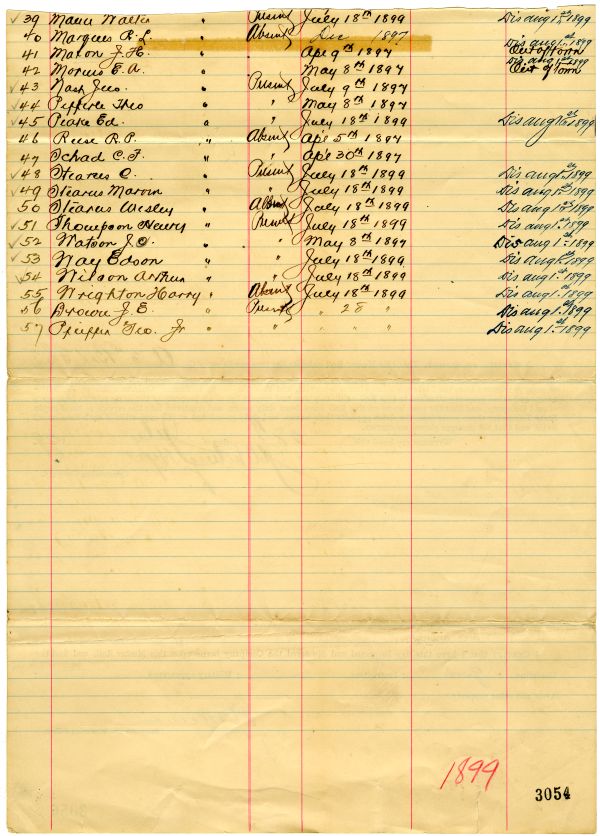 39 Mann Walter " Present July 18th 1899 Dis aug 1st 1899
40 Marques R. L. " Absent Dec 1897 Dis aug 1st 1899
41 Maxon J. H. " Apr 9th 1897 Out of town
42 Morris E. A. " May 8th 1897 Dis aug 1st 1899 Out of town
43 Nash Geo. " Present July 9th 1897
44 Pefferle Theo " " May 8th 1897
45 Peake Ed. " " July 18th 1899 Dis aug 1st 1899
46 Reese R. P. " Absent Apr 5th 1897
47 Schad C. F. " " Apr 30th 1897
48 Stearus C. " Present July 18th 1899 Dis aug 1st 1899
49 Stearus Marvin " " July 18th 1899 Dis aug 1st 1899
50 Stearus Wesley " Absent July 18th 1899 Dis aug 1st 1899
51 Thompson Henry " Present July 18th 1899 Dis aug 1st 1899
52 Watson J. O. " " May 8th 1897 Dis aug 1st 1899
53 Way Edson " " July 18th 1899 Dis aug 1st 1899
54 Wilson Arthur " " July 18th 1899 Dis aug 1st 1899
55 Wrighton Harry " Absent July 18th 1899 Dis aug 1st 1899
56 Brown J. E. " Present " 28 " Dis aug 1st 1899
57 Pfeiffer Geo. Jr " " " " " Dis aug 1st 1899
1899
3054